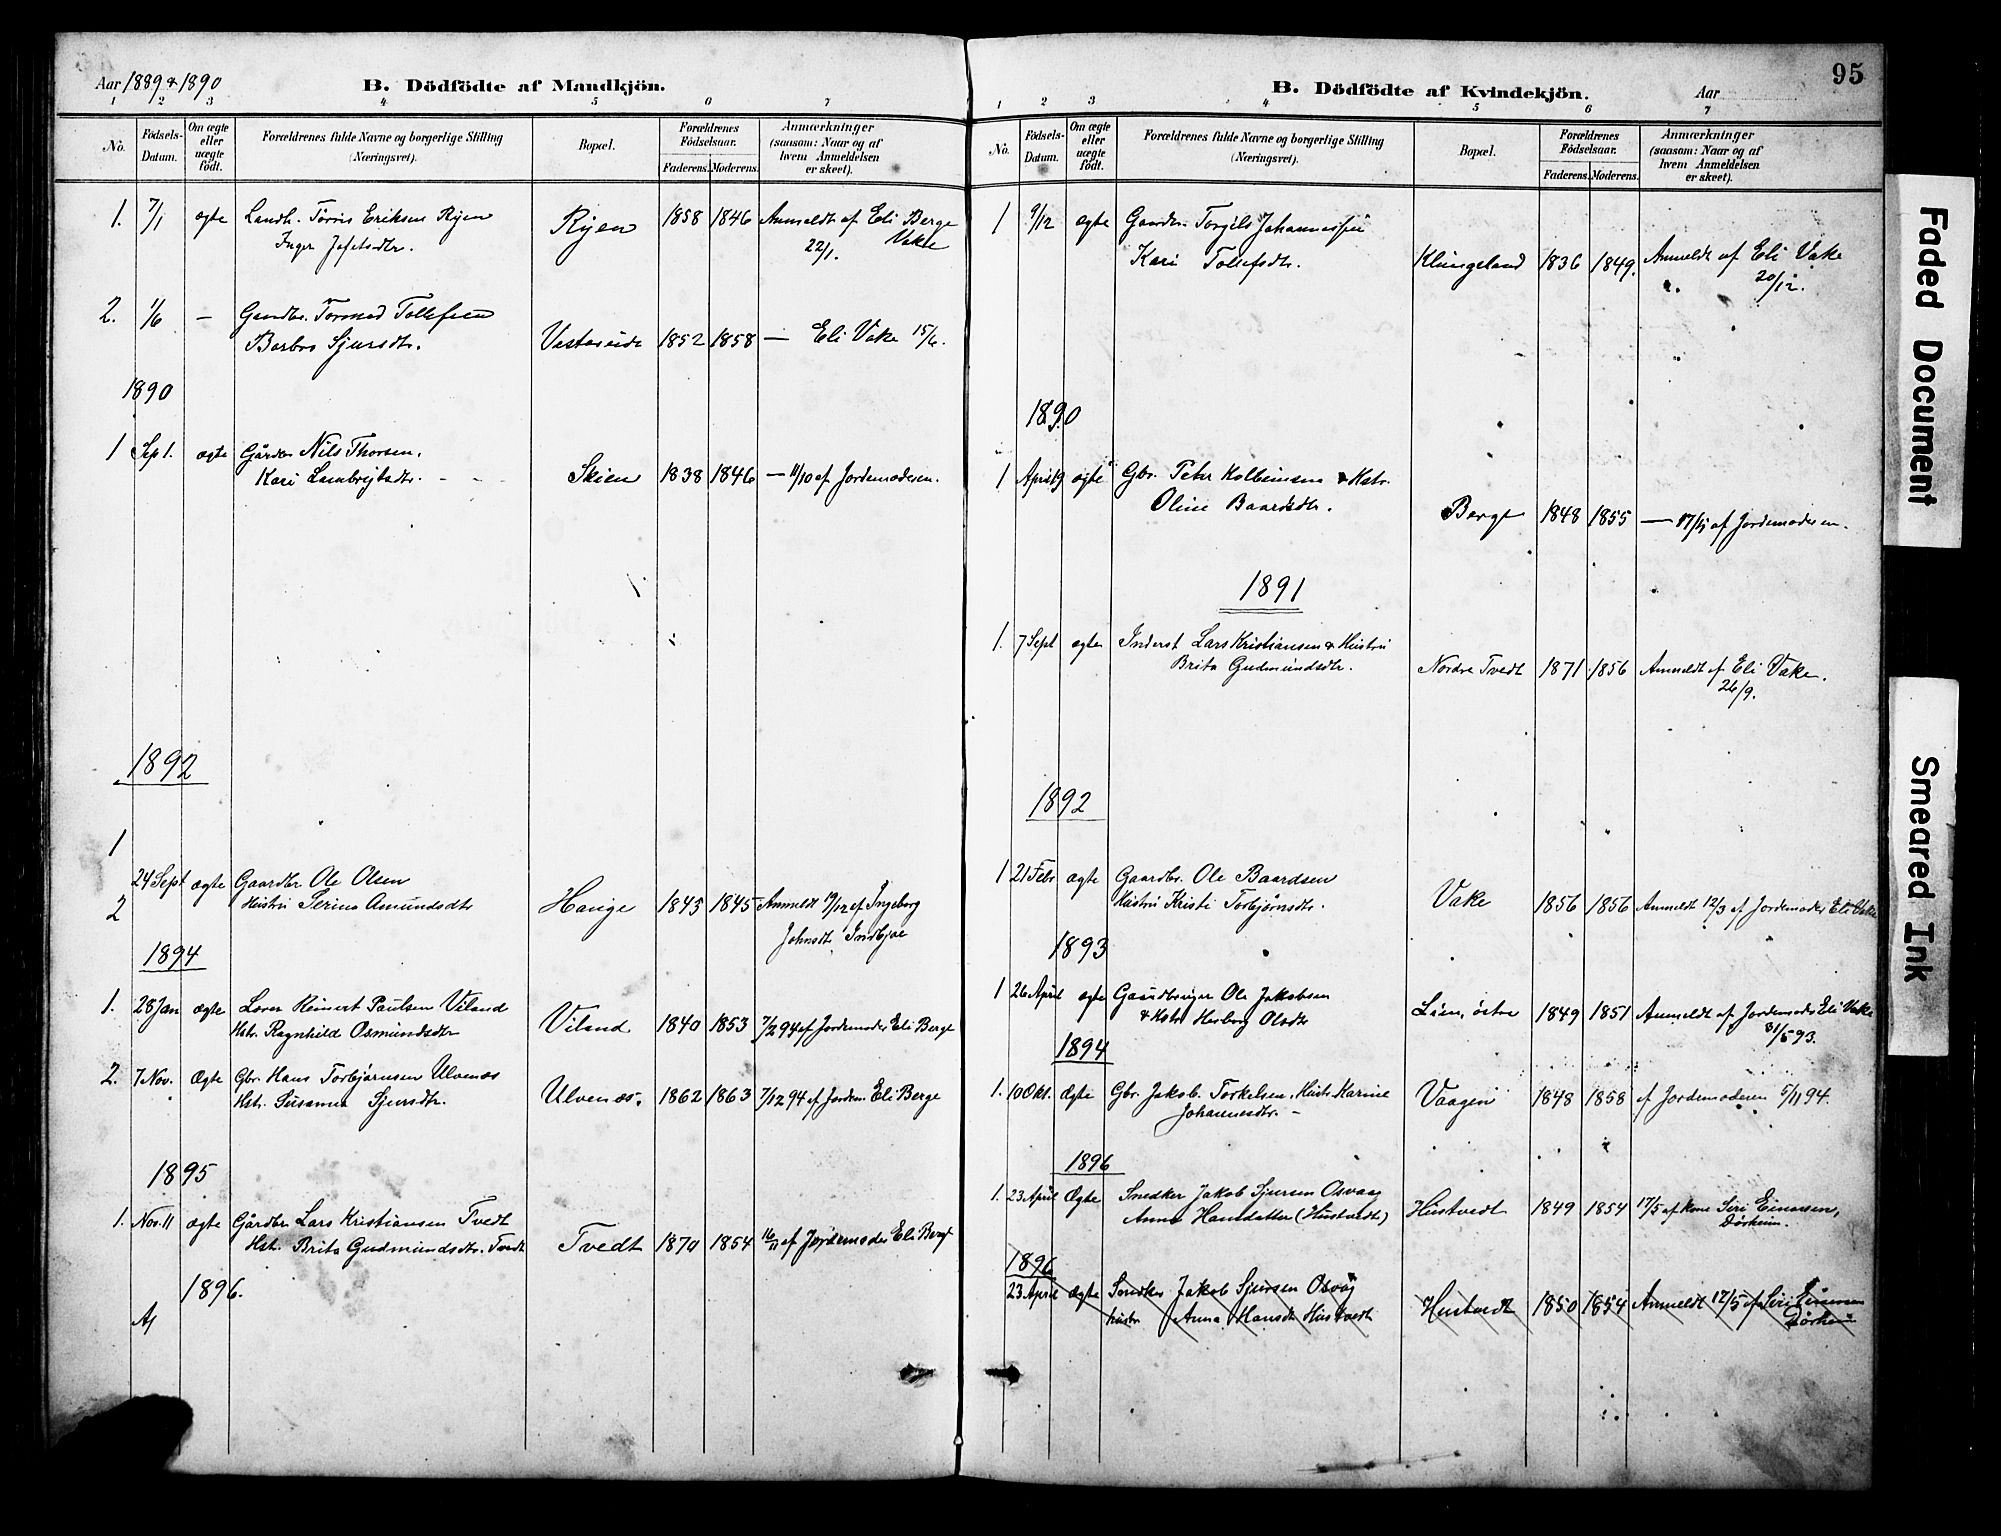 Aar 1889 & 1890
B. Dödfödte af Mandkjön.
1 2 3 4 5 6 7
No.
Födsels-Datum.
Om ægte eller uægte födt.
Forældrenes fulde Navne og borgerlige Stilling (Næringsvei).
Bopæl.
Forældrenes Födselsaar.
Faderens. Moderens.
Anmærkninger (saasom: Naar og af hvem Anmeldelsen er skeet).
1. 7/1 ægte Landh. Tørris Eriksen Ryen Ryen 1858 1846 Anmeldt af Eli Berge
Inger Josefsdtr. 22/1. Vake
2. 1/6 — Gaardbr. Tormod Tollefsen
Barbro Sjursdtr. Vestersiide 1852 1858 — Eli Vake 15/6.
1890
1 Sep 1. ægte Gårdbr Nils Thorsen.
Kari Lambrigtsdtr. Skien 1838 1846 — 11/10 af Jordemoderen.
1892
1
24 Sept ægte Gaardbr Ole Olsen
2 Hustru Serina Asmundsdtr Hauge 1843 1845 Anmeldt 19/12 af Ingeborg
Johnsdtr. Indbjoe
1894
1. 28 Jan ægte Løver Reinert Paulsen Viland
Hst. Ragnhild Osmundsdtr Viland 1840 1853 7/2 94 af Jordemoder Eli Berge
2. 7 Nov. Ægte Gbr. Hans Torbjørnsen Ulvenæs
Hst. Susanna Sjursdtr. Ulvenæs. 1862 1863 7/12 94 af Jordem. Eli Berge
1895
1. Nov. 11 ægte Gårdbr Lars Kristiansen Tvedt
Hst. Brita Gudmundsdtr. Tvedt Tvedt 1870 1854 16/11 af Jordemoder Eli Bergt
1896.
B. Dödfödte af Kvindekjön.
Aar
95
1 2 3 4 5 6 7
No.
Födsels-Datum.
Om ægte eller uægte födt.
Forældrenes fulde Navne og borgerlige Stilling (Næringsvei).
Bopæl.
Forældrenes Födselsaar.
Faderens. Moderens.
Anmærkninger (saasom: Naar og af hvem Anmeldelsen er skeet).
1 9/12 ægte Gaardbr. Torgils Johannesen
Kari Tollefsdtr. Klungeland 1836 1849. Anmeldt af Eli Vake
20/12.
1890
1 April 19 ægte Gbr. Peter Kolbeinsen & Hstr.
Oline Baardsdtr. Berge 1848 1855 — 17/5 af Jordemoderen.
1891
1. 7 Sept ægte Inderst Lars Kristiansen & Hustru
Brita Gudmundsdtr. Nordre Tvedt 1871 1856 Anmeldt af Eli Vake.
26/9.
1892
1 21 Febr ægte Gaardbr. Ole Baardsen
Hustru Kristi Torbjørnsdtr. Vake 1856 1856 Anmeldt 12/3 af Jordemoder Eli Vake
1893
1 26 April ægte Gaardbruger Ole Jakobsen
& Hstr Herborg Olsdtr Lien, østre 1849 1851 Anmeldt af Jordemoder Eli Vake
31/5 93.
1894
1. 10 Okt. Ægte Gbr. Jakob Torkelsen, Hust. Karine
Johannesdtr. — Vaagen 1848 1858 af Jordemoderen 5/11 94.
1896
1. 23 April Ægte Snedker Jakob Sjursen Osvaag
Anna Hansdatter (Hustvedt) Hustvedt 1849 1854 17/5 af kone Siri Einarsen,
Dørheim.
1896
23 April Ægte Snedker Jakob Sjursen Osvåg
hustr Anna Hansdtr Hustvedt Hustvedt 1850 1854 Anmeldt 17/5 af Siri Einarsen
Dørheim
Faded Document
Smeared Ink